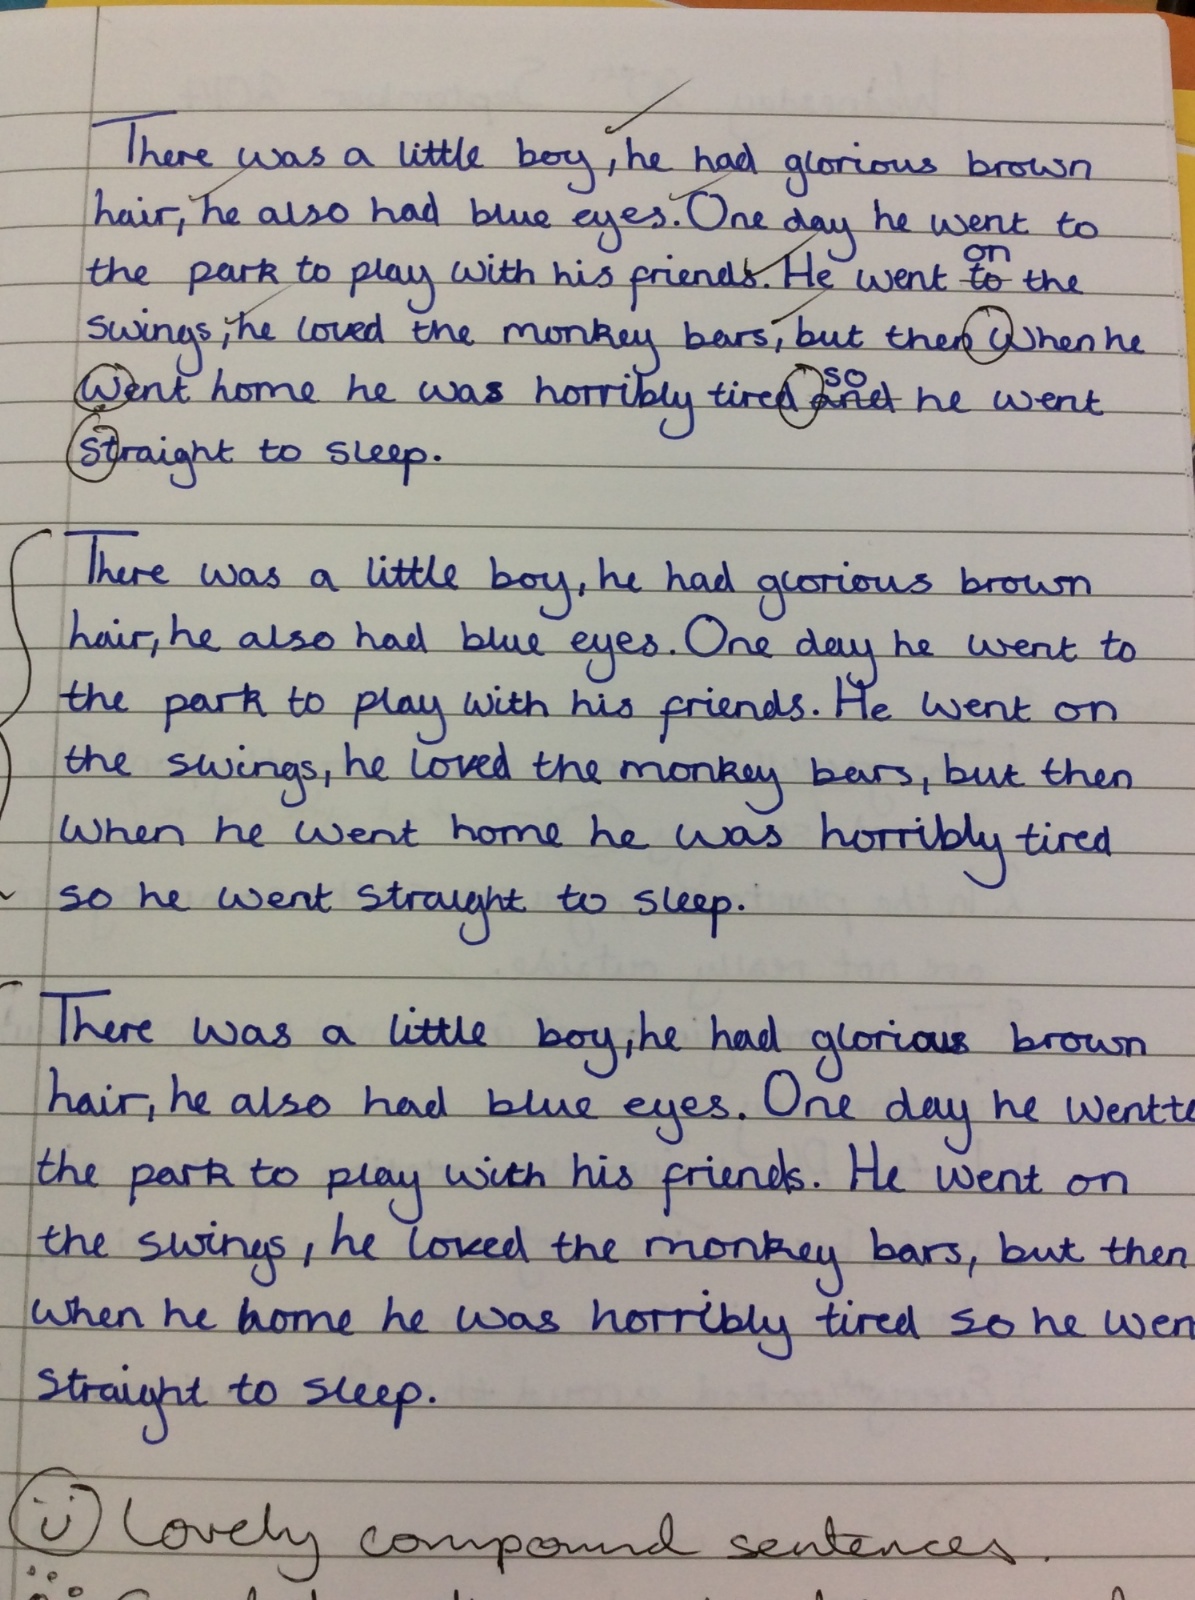 There was a little boy, he had glorious brown
hair, he also had blue eyes. One day he went to
the park to play with his friends. He went to on the
swings, he loved the monkey bars, but then When he
went home he was horribly tired and so he went
straight to sleep.
There was a little boy, he had glorious brown
hair, he also had blue eyes. One day he went to
the park to play with his friends. He went on
the swings, he loved the monkey bars, but then
when he went home he was horribly tired
so he went straight to sleep.
There was a little boy, he had glorious brown
hair, he also had blue eyes. One day he went to
the park to play with his friends. He went on
the swings, he loved the monkey bars, but then
when he home he was horribly tired so he wen
straight to sleep.
Lovely compound sentences.